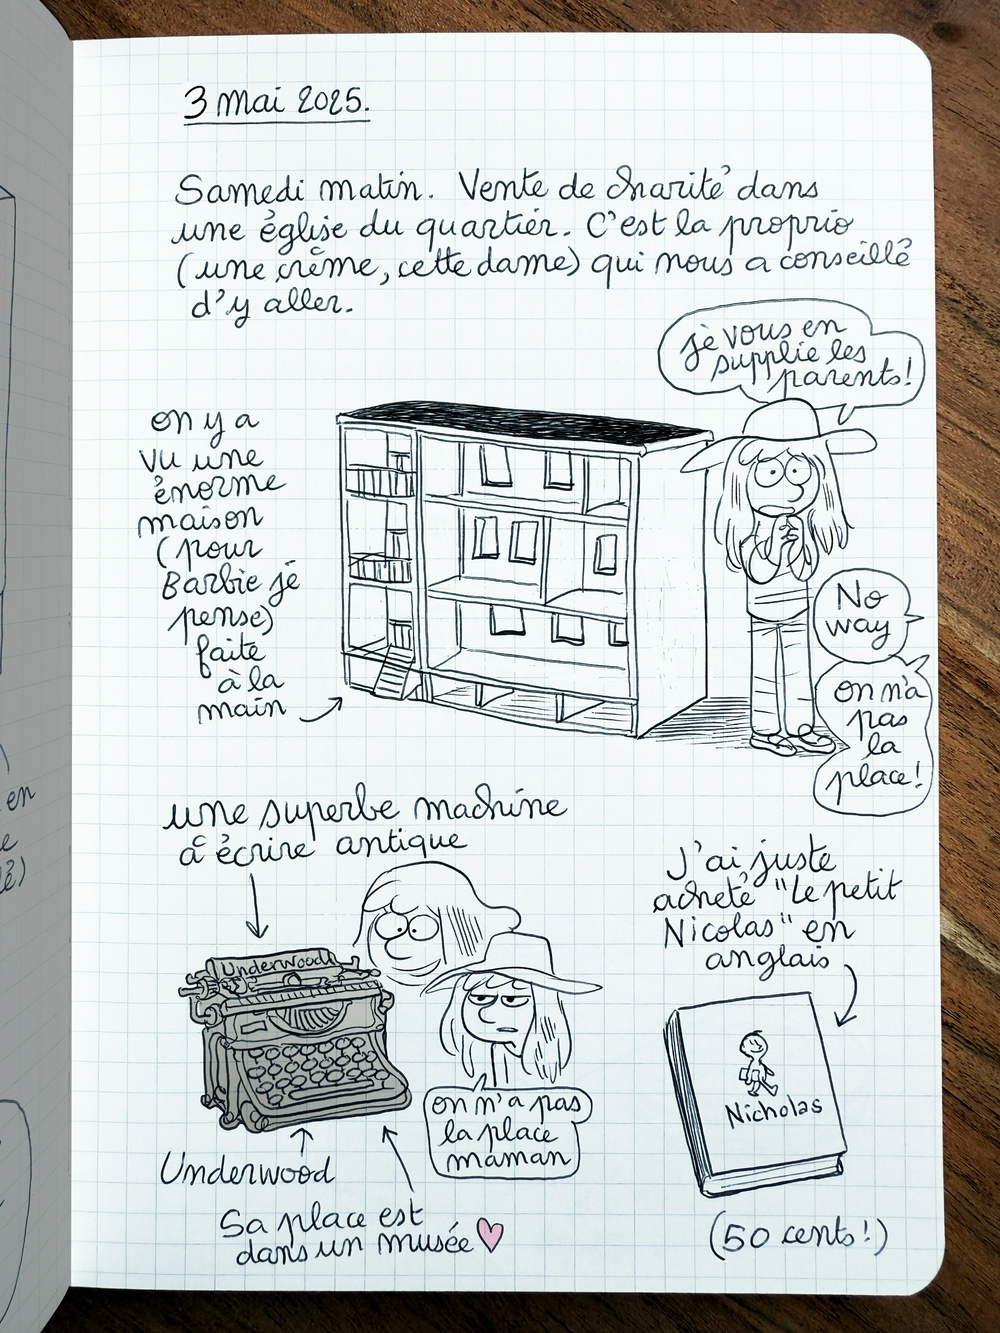 3 mai 2025.
Samedi matin. Vente de charité dans
une église du quartier. C'est la proprio
(une crème, cette dame) qui nous a conseillé
d'y aller.
je vous en
supplie les
parents!
on y a
vu une
énorme
maison
(pour
Barbie je
pense)
faite
à la
main
No
way
on n'a
pas
la
place!
une superbe machine
à écrire antique
Underwood
on n'a pas
la place
maman
Underwood
Sa place est
dans un musée
J'ai juste
acheté "Le petit
Nicolas" en
anglais
Nicholas
(50 cents!)
en